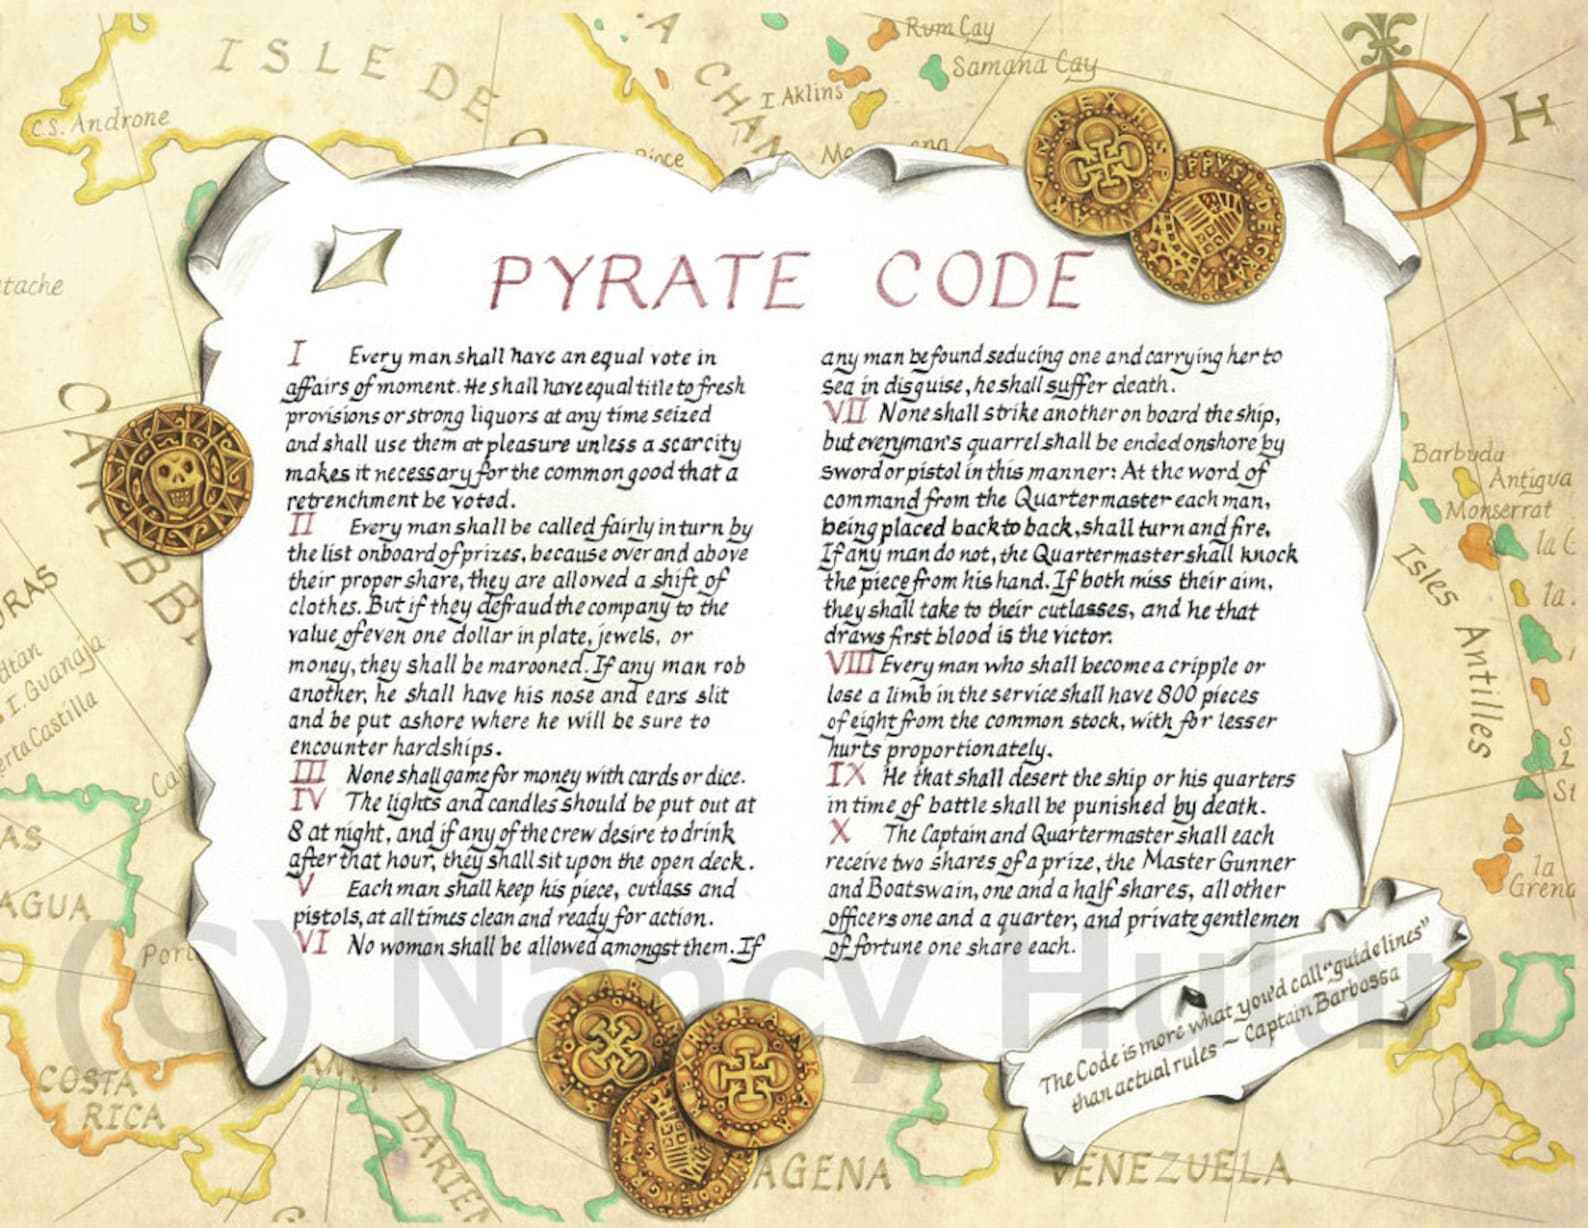 ISLE DE
C.S. Androne
CHAN
Rum Cay
Samana Cay
I. Aklins
H
PYRATE CODE
I Every man shall have an equal vote in
affairs of moment. He shall have equal title to fresh
provisions or strong liquors at any time seized
and shall use them at pleasure unless a scarcity
makes it necessary for the common good that a
retrenchment be voted.
II Every man shall be called fairly in turn by
the list onboard of prizes, because over and above
their proper share, they are allowed a shift of
clothes. But if they defraud the company to the
value of even one dollar in plate, jewels, or
money, they shall be marooned. If any man rob
another, he shall have his nose and ears slit
and be put ashore where he will be sure to
encounter hardships.
III None shall game for money with cards or dice.
IV The lights and candles should be put out at
8 at night, and if any of the crew desire to drink
after that hour, they shall sit upon the open deck.
V Each man shall keep his piece, cutlass and
pistols, at all times clean and ready for action.
VI No woman shall be allowed amongst them. If
any man be found seducing one and carrying her to
sea in disguise, he shall suffer death.
VII None shall strike another on board the ship,
but everyman's quarrel shall be ended onshore by
sword or pistol in this manner: At the word of
command from the Quartermaster each man,
being placed back to back, shall turn and fire.
If any man do not, the Quartermaster shall knock
the piece from his hand. If both miss their aim,
they shall take to their cutlasses, and he that
draws first blood is the victor.
VIII Every man who shall become a cripple or
lose a limb in the service shall have 800 pieces
of eight from the common stock, with for lesser
hurts proportionately.
IX He that shall desert the ship or his quarters
in time of battle shall be punished by death.
X The Captain and Quartermaster shall each
receive two shares of a prize, the Master Gunner
and Boatswain, one and a half shares, all other
officers one and a quarter, and private gentlemen
of fortune one share each.
The Code is more what you'd call "guidelines"
than actual rules ~ Captain Barbossa
tache
URAS
I. Guanaja
erta Castilla
AS
AGUA
Port
COSTA
RICA
DARIEN
AGENA
VENEZUELA
Barbuda
Antigua
Monserrat
Isles Antilles
la
Grena
(C) Nancy Hulan